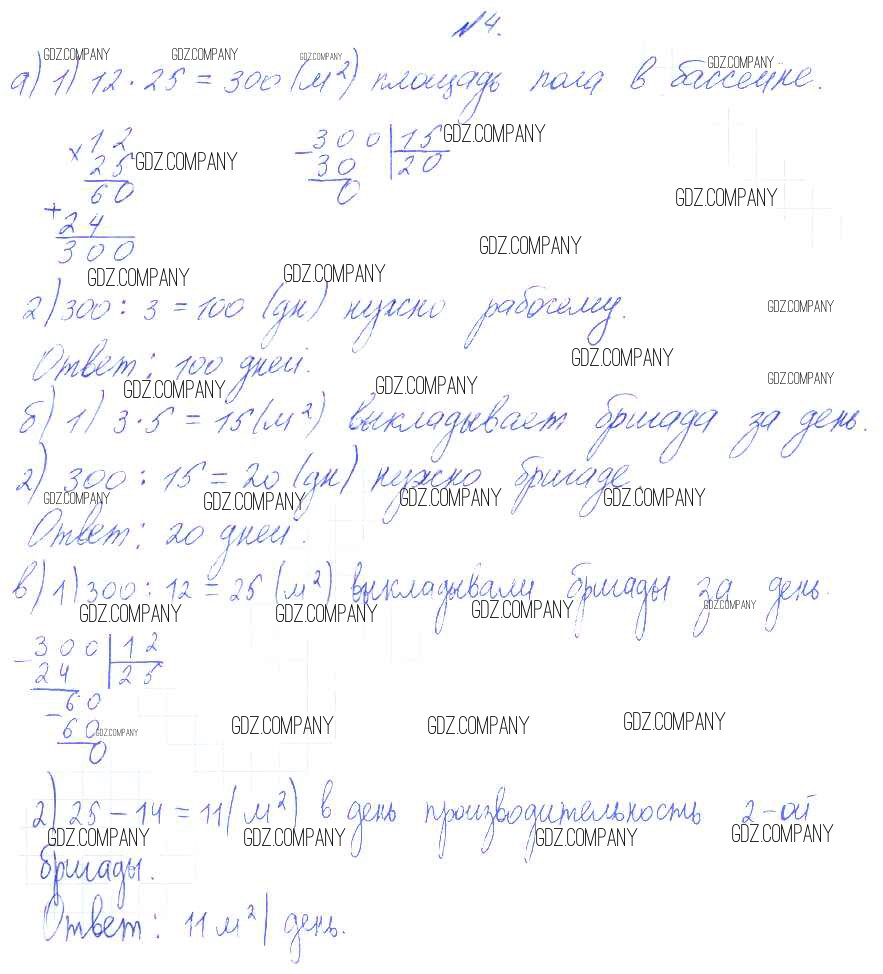 №4.
GDZ.COMPANY GDZ.COMPANY GDZ.COMPANY GDZ.COMPANY
а) 1) 12 · 25 = 300 (м²) площадь пола в бассейне.
× 12 − 300 | 15 GDZ.COMPANY
25 GDZ.COMPANY 30 20
60 0
GDZ.COMPANY
+ 24
300 GDZ.COMPANY
GDZ.COMPANY GDZ.COMPANY
2) 300 : 3 = 100 (дн) нужно рабочему. GDZ.COMPANY
Ответ: 100 дней. GDZ.COMPANY
GDZ.COMPANY GDZ.COMPANY GDZ.COMPANY
б) 1) 3 · 5 = 15 (м²) выкладывает бригада за день.
2) 300 : 15 = 20 (дн) нужно бригаде
GDZ.COMPANY GDZ.COMPANY GDZ.COMPANY GDZ.COMPANY
Ответ: 20 дней.
в) 1) 300 : 12 = 25 (м²) выкладывали бригады за день.
GDZ.COMPANY GDZ.COMPANY GDZ.COMPANY GDZ.COMPANY
− 300 | 12
24 25
− 60
60 GDZ.COMPANY GDZ.COMPANY GDZ.COMPANY GDZ.COMPANY
0
2) 25 − 14 = 11 (м²) в день производительность 2-ой
GDZ.COMPANY GDZ.COMPANY GDZ.COMPANY GDZ.COMPANY
бригады.
Ответ: 11 м² | день.